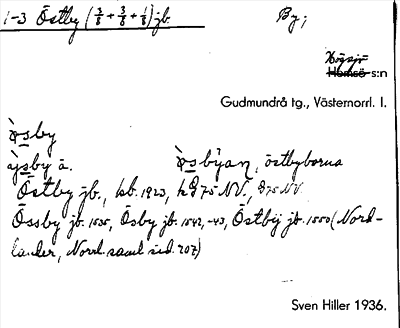 1-3 Östby (3/8 + 3/8 + 1/8) jb. By;
Högsjö
Hemsö s:n
Gudmundrå tg., Västernorrl. l.
ò̀sby
àjsby ä. ò̀sbyan, östbyborna
Östby jb., kb. 1923, kg 75 NV., g 75 NV
Össby jb. 1535, Ösby jb. 1542, -43, Östbÿ jb. 1550 (Nord-
lander, Norrl. saml sid. 207)
Sven Hiller 1936.